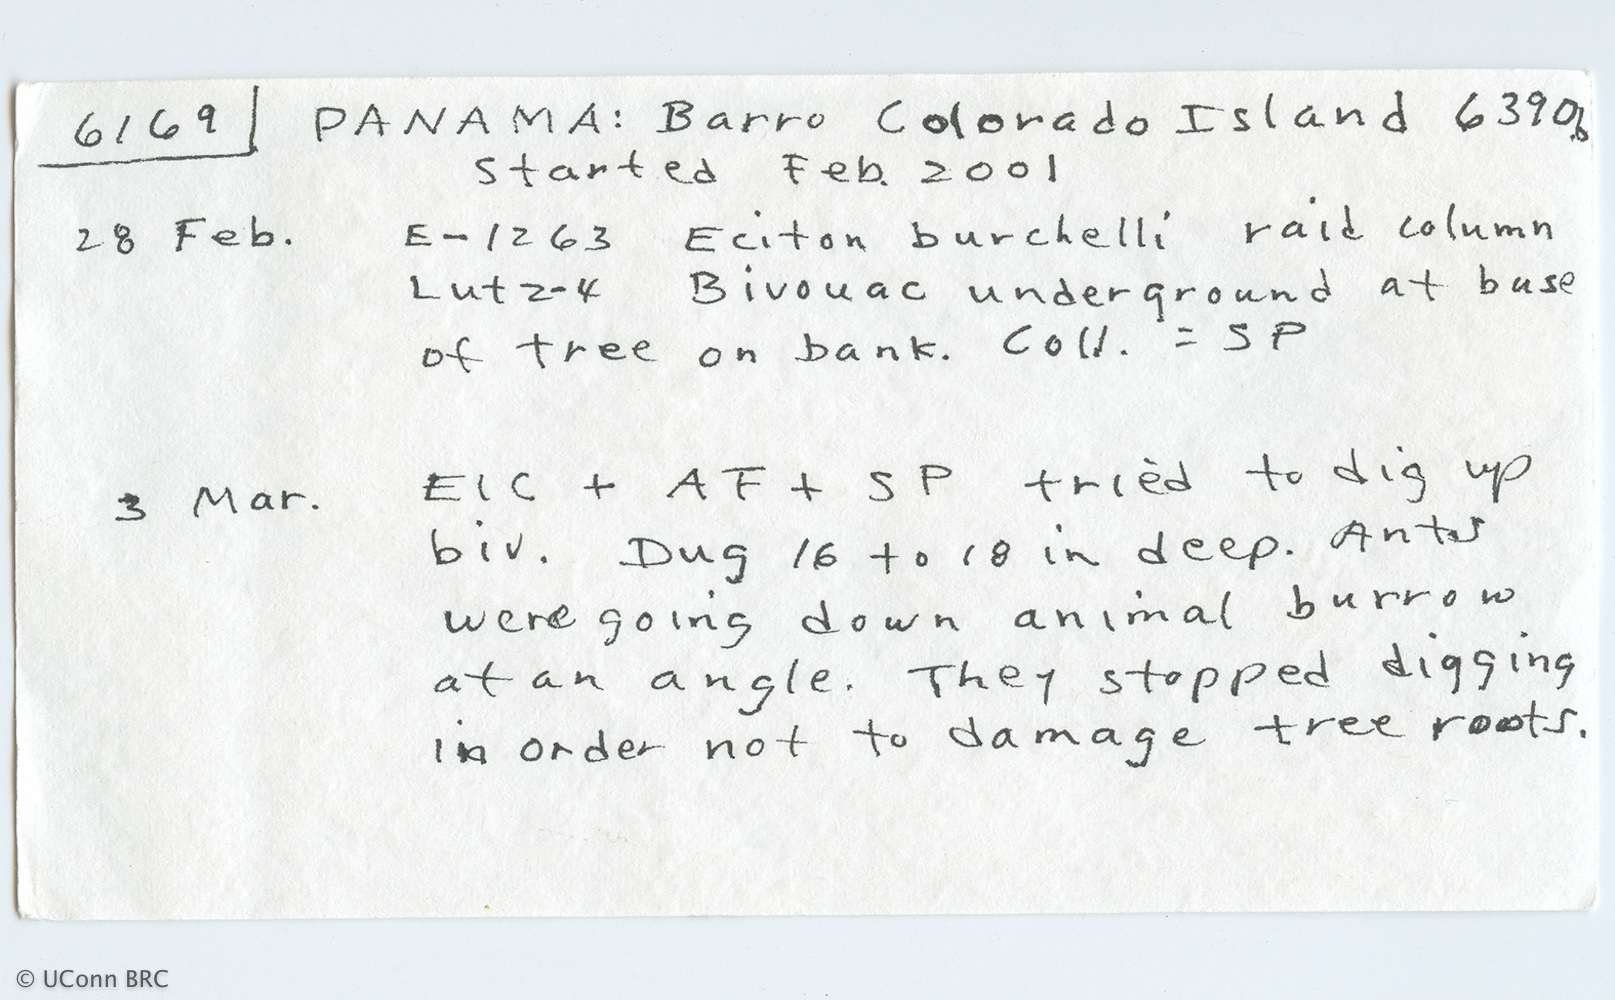 6169 PANAMA: Barro Colorado Island
Started Feb. 2001
28 Feb. E-1263 Eciton burchelli raid column
Lutz-4 Bivouac underground at base
of tree on bank. Coll. = SP
3 Mar. EIC + AF + SP tried to dig up
biv. Dug 16 to 18 in deep. Ants
were going down animal burrow
at an angle. They stopped digging
in order not to damage tree roots.
© UConn BRC